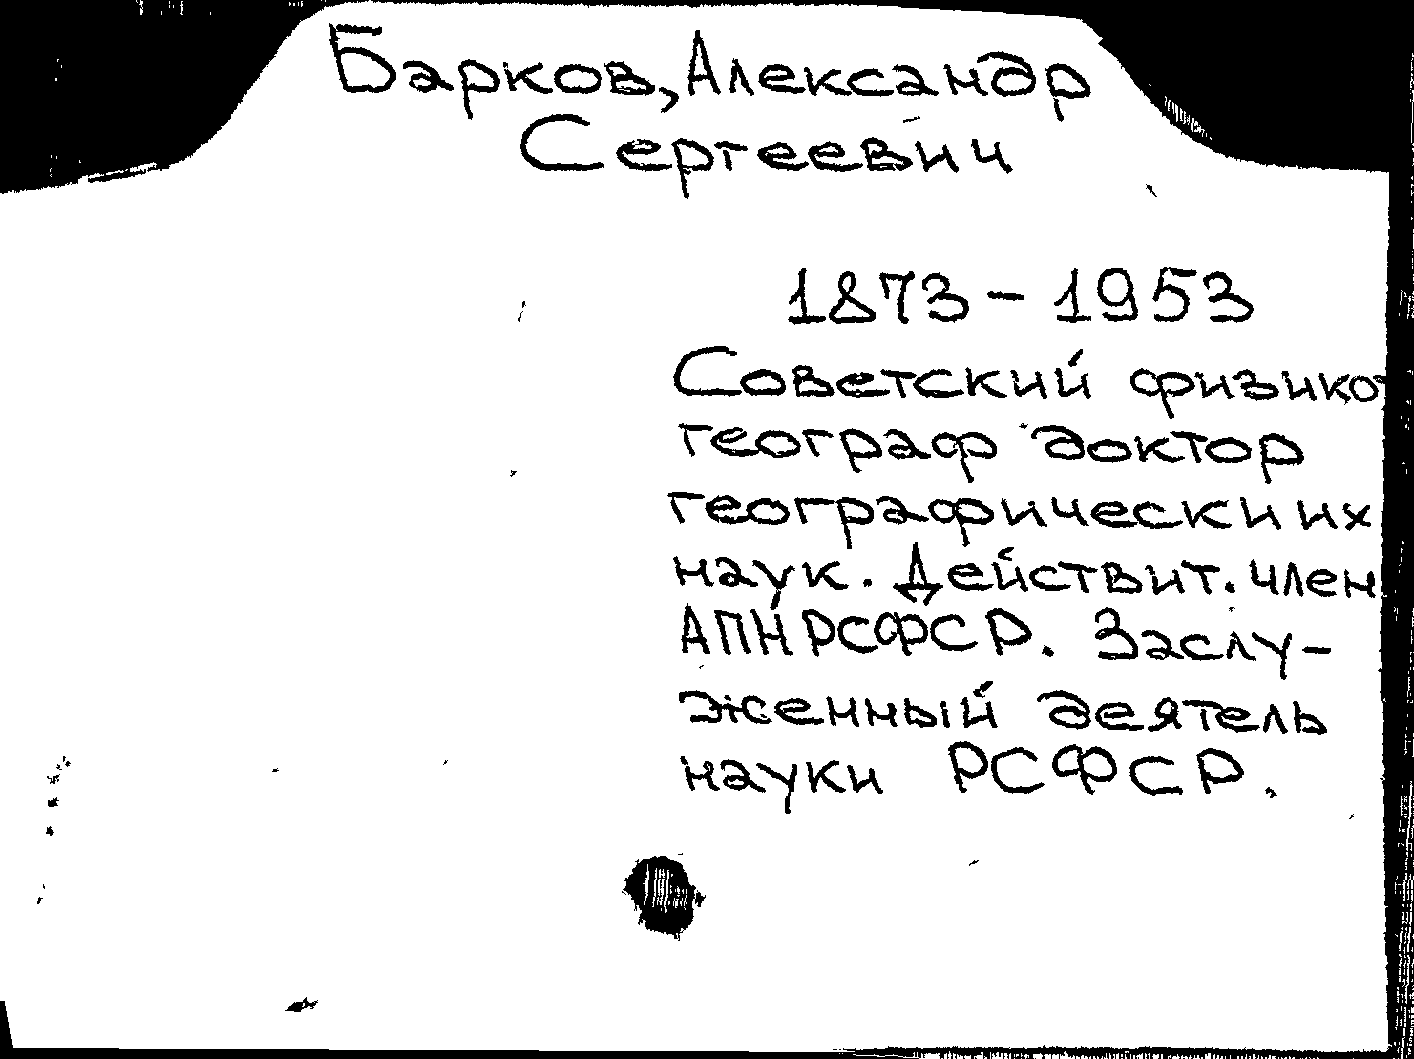 Барков, Александр
Сергеевич
1873-1953
Советский физико-
географ доктор
географически их
наук. Действит. член
АПН РСФСР. Заслу-
женный деятель
науки РСФСР.